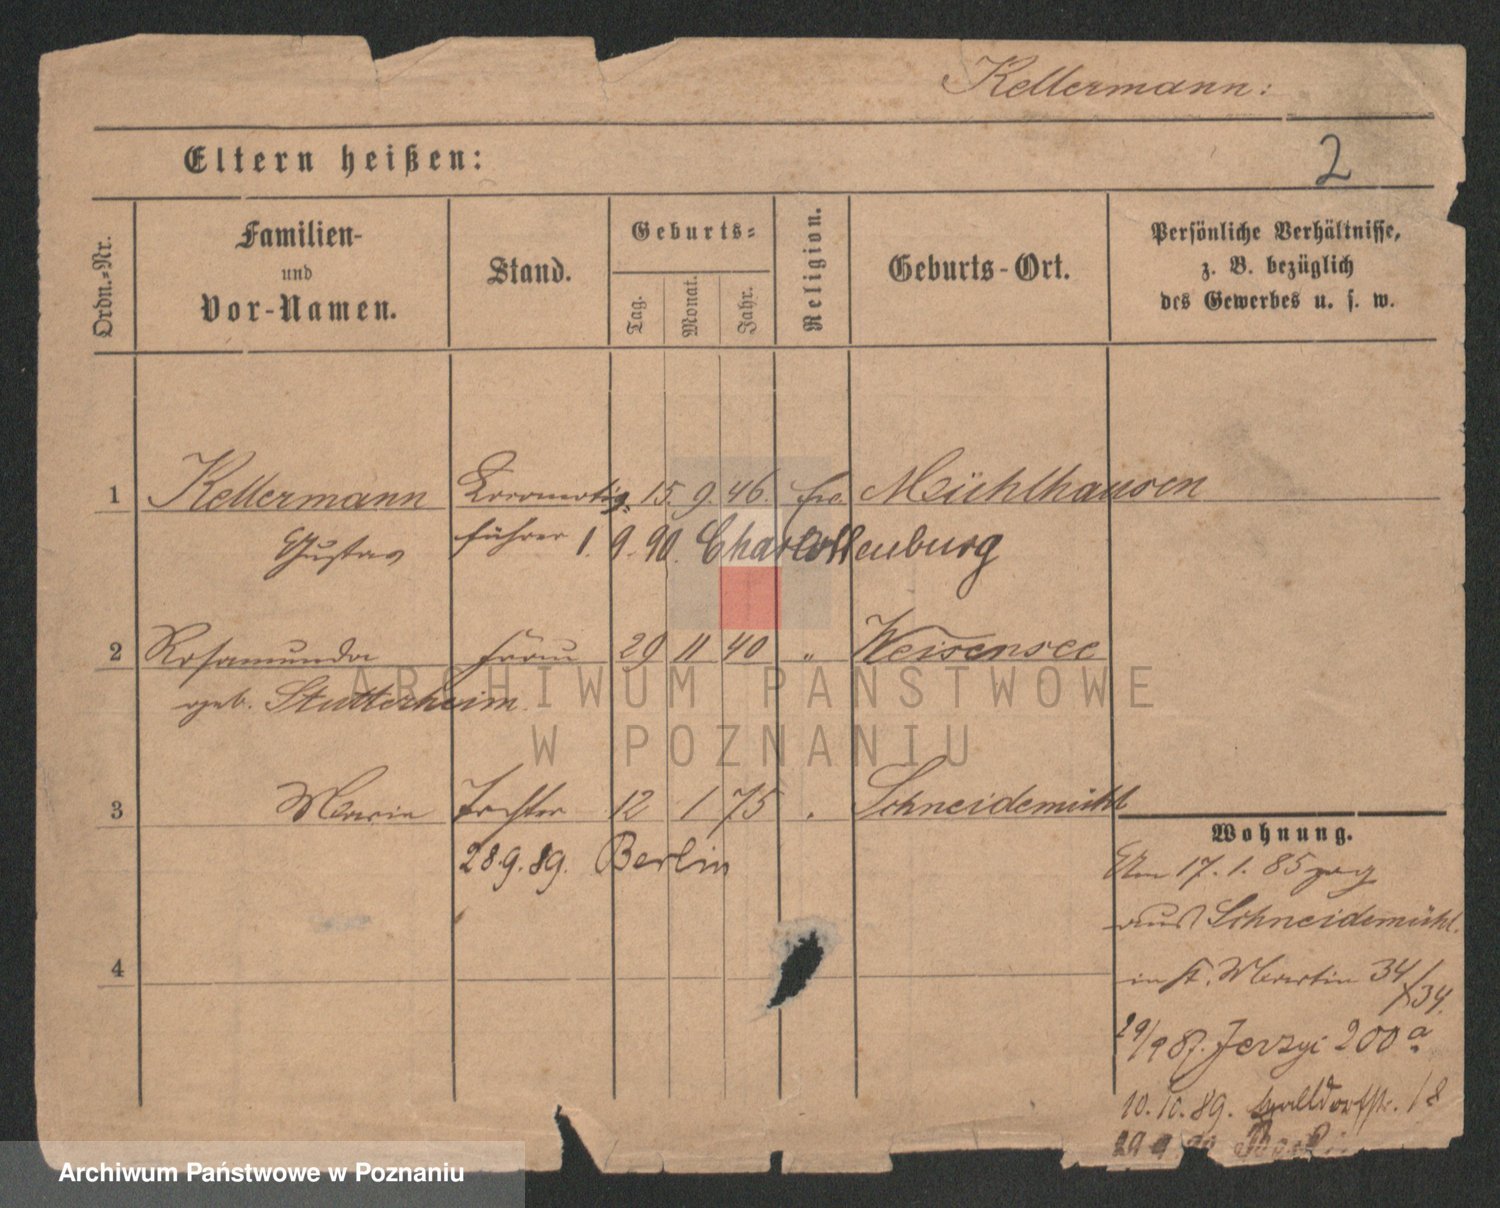 Kellermann:
Eltern heißen:
2
Ordn.-Nr.
Familien-
und
Vor-Namen.
Stand.
Geburts-
Tag.
Monat.
Jahr.
Religion.
Geburts-Ort.
Persönliche Verhältnisse,
z. B. bezüglich
des Gewerbes u. s. w.
1 Kellermann Locomotiv- 15. 9. 46. Mühlhausen
Gustav führer 1. 9. 90. Charlottenburg
2 Rosamunda Frau 29 11 40 " Weisensee
geb. Stutterheim
3 Maria Tochter 12 1 75 " Schneidemühl
28.9.89. Berlin
4
Wohnung.
Am 17. 1. 85 zog
aus Schneidemühl.
in St. Martin 34/
34.
29/9 87. Jerzyi 200a
10. 10. 89. 18
ARCHIWUM PAŃSTWOWE
W POZNANIU
Archiwum Państwowe w Poznaniu